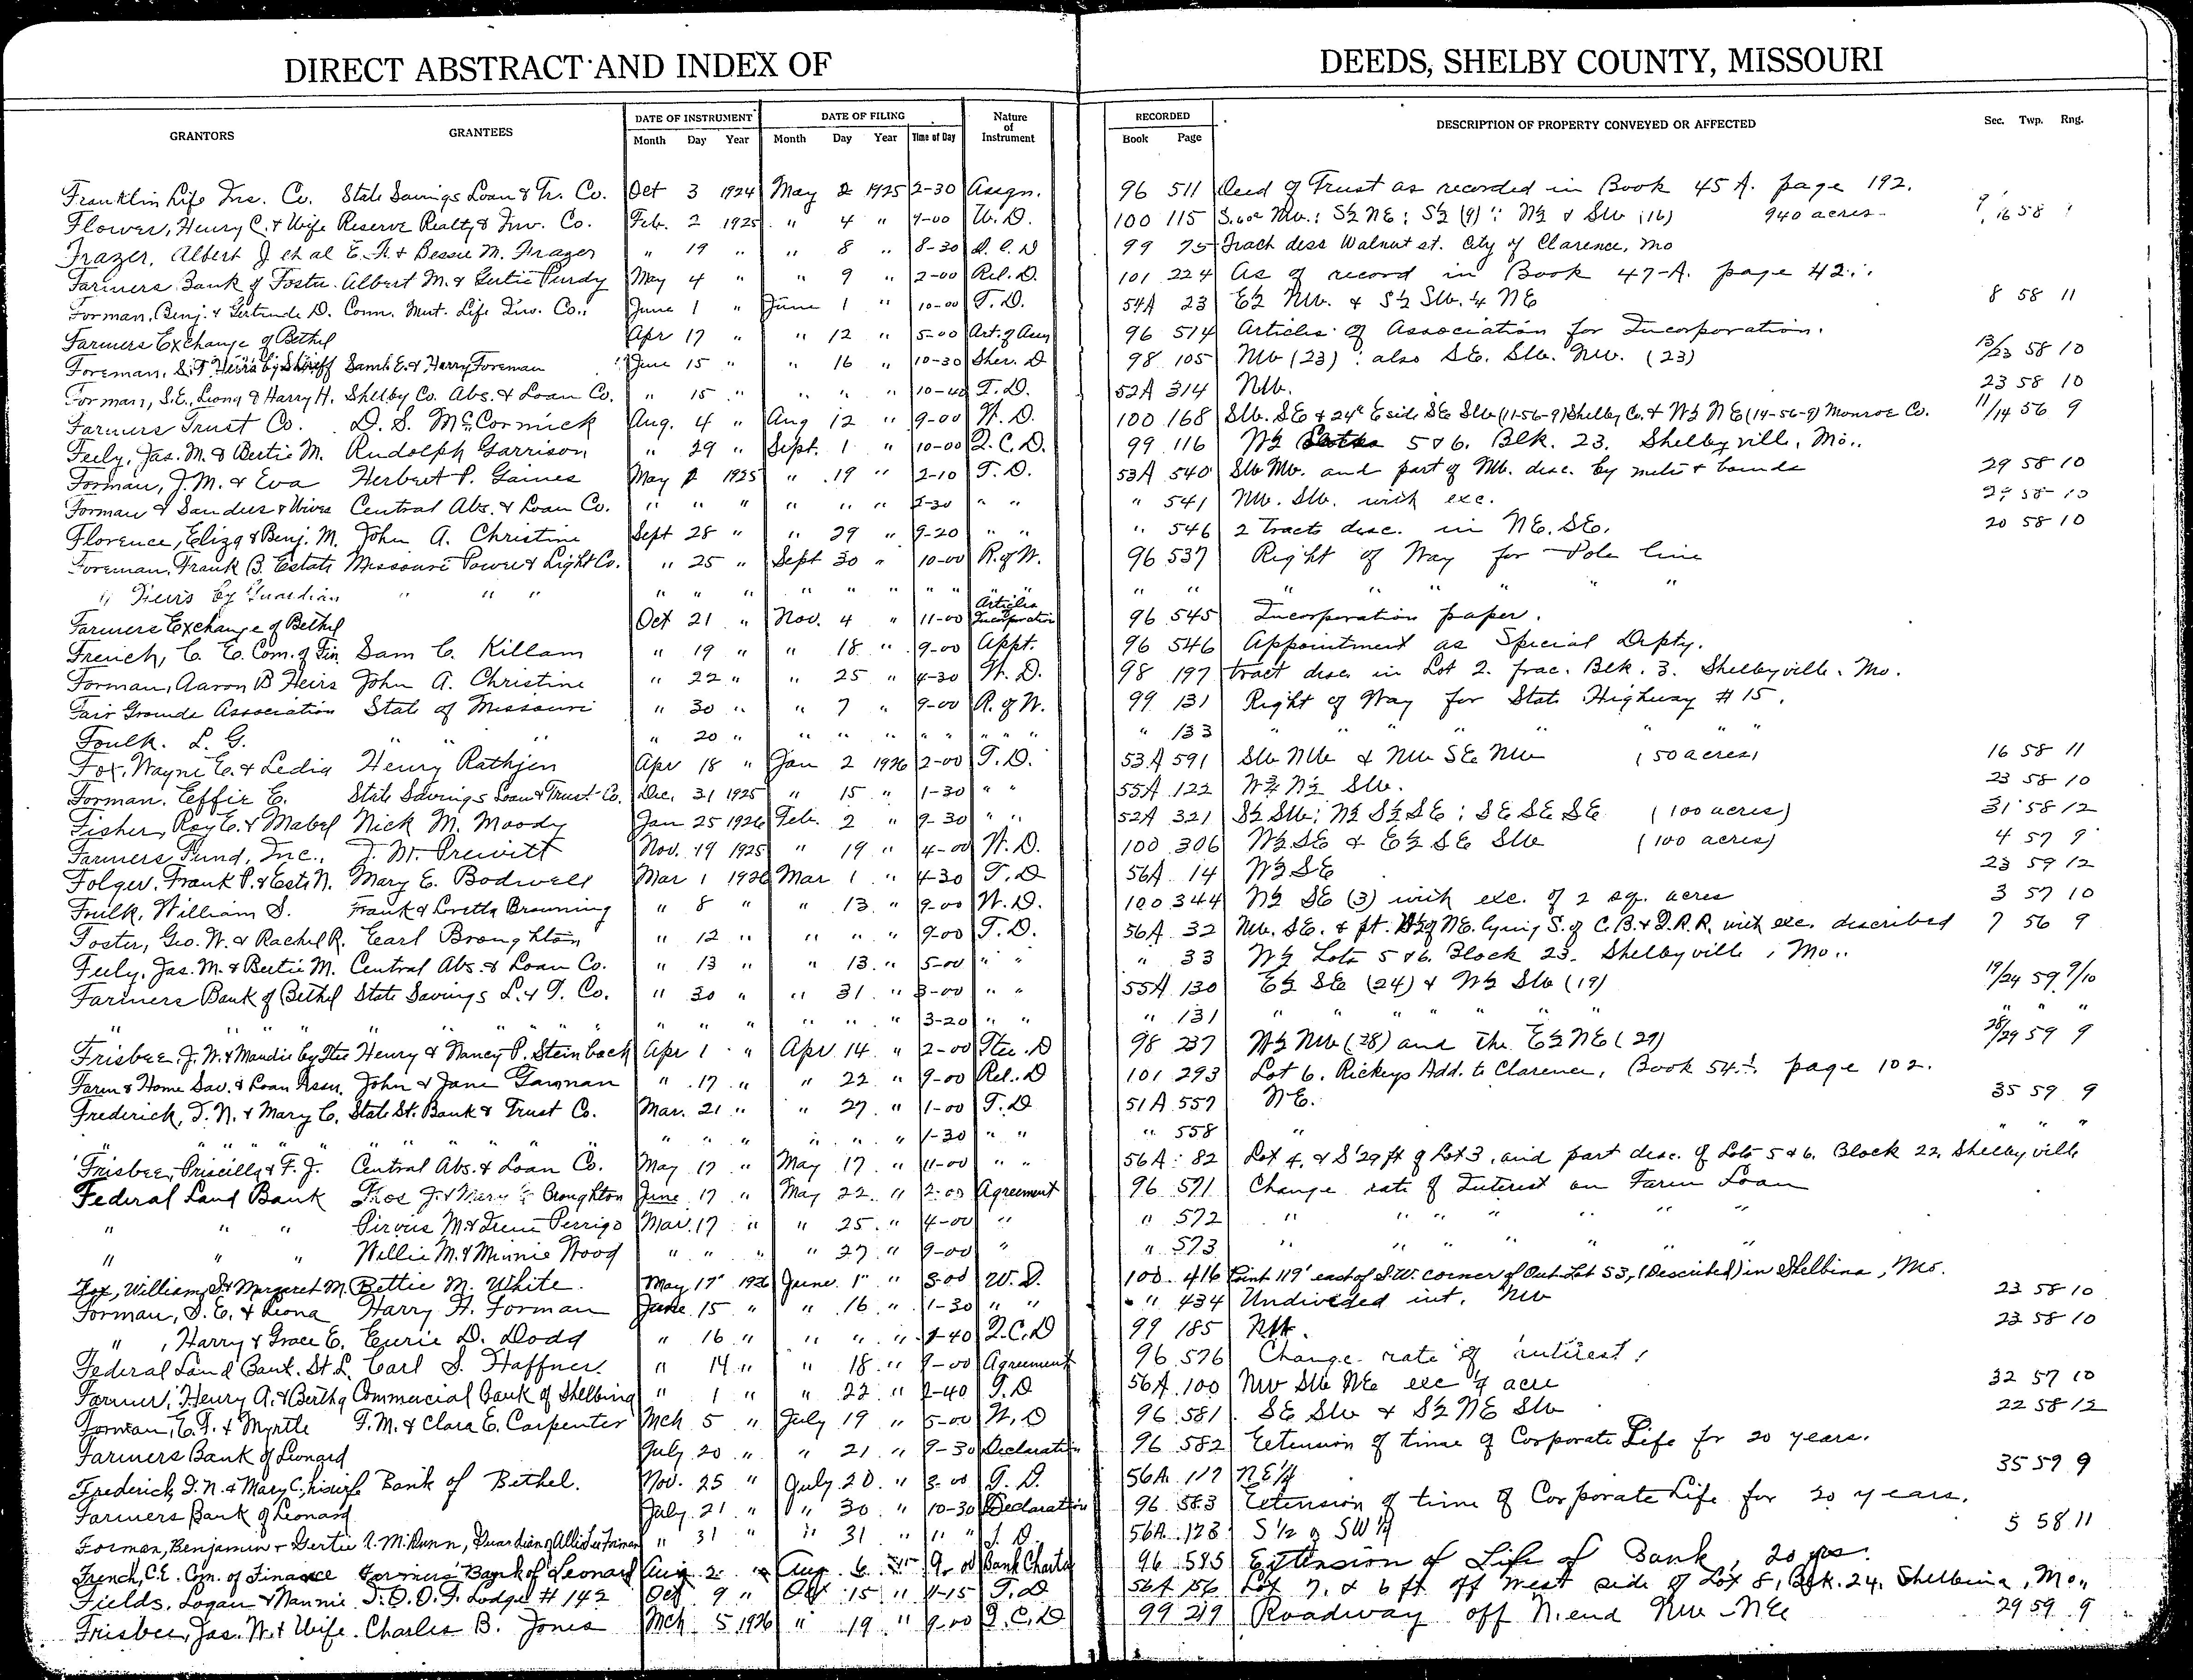 DIRECT ABSTRACT AND INDEX OF DEEDS, SHELBY COUNTY, MISSOURI
GRANTORS GRANTEES DATE OF INSTRUMENT DATE OF FILING Nature of Instrument RECORDED DESCRIPTION OF PROPERTY CONVEYED OR AFFECTED Sec. Twp. Rng.
Month Day Year Month Day Year Time of Day Book Page
Franklin Life Ins. Co. State Savings Loan & Tr. Co. Oct 3 1924 May 2 1925 2-30 Assgn. 96 511 Deed of Trust as recorded in Book 45 A. page 192.
Flower, Henry C. & Wife Reserve Realty & Inv. Co. Feb. 2 1925 " 4 " 9-00 W. D. 100 115 S½ NE; S½ (9); N½ & SW (16) 940 acres 16 58
Frazer, Albert J. et al E. F. & Bessie M. Frazer " 19 " " 8 " 8-30 Q. C. D 99 75 Tract desc Walnut st. City of Clarence, Mo
Farmers Bank of Foster Albert M. & Gertie Purdy May 4 " " 9 " 2-00 Rel. D. 101 224 As of record in Book 47-A. page 42
Forman, Benj. & Gertrude D. Conn. Mut. Life Inv. Co. June 1 " June 1 " 10-00 T. D. 54A 23 E½ NW. & S½ SW. ¼ NE 8 58 11
Farmers Exchange of Bethel Apr 17 " " 12 " 5-00 Art. of Assn 96 514 Articles of Association for Incorporation.
Foreman, S. T. Heirs by Sheriff Saml. E. & Harry Foreman June 15 " " 16 " 10-30 Sher. D 98 105 NW (23); also SE. SW. NW. (23) 13/23 58 10
Forman, S.E., Leona & Harry H. Shelby Co. Abs. & Loan Co. " 15 " " " " 10-40 T. D. 52A 314 NW. 23 58 10
Farmers Trust Co. D. S. McCormick Aug. 4 " Aug 12 " 9-00 W. D. 100 168 SW. SE & 24a E side SE SW (11-56-9) Shelby Co. & W½ NE (14-56-9) Monroe Co. 11/14 56 9
Feely, Jas. M. & Bertie M. Rudolph Garrison " 29 " Sept. 1 " 10-00 Q. C. D. 99 116 W½ 5 & 6. Blk. 23. Shelbyville, Mo..
Forman, J. M. & Eva Herbert P. Gaines May 2 1925 " 19 " 2-10 T. D. 53A 540 SW NW. and part of NW. desc. by mets & bounds 29 58 10
Forman & Sanders & Wives Central Abs. & Loan Co. " " " " " " 2-30 " " " 541 NW. SW. with exc. 58 10
Florence, Eliza & Benj. M. John A. Christine Sept 28 " " 29 " 9-20 " " " 546 2 Tracts desc. in NE. SE. 20 58 10
Foreman, Frank B. Estate Missouri Power & Light Co. " 25 " Sept 30 " 10-00 R. of W. 96 537 Right of Way for Pole line
" Heirs by Guardian " " " " " " " " " " " " " " " " " "
Farmers Exchange of Bethel Oct 21 " Nov. 4 " 11-00 Articles Incorporation 96 545 Incorporation paper.
French, C. E. Com. of Fin. Sam C. Killam " 19 " " 18 " 9-00 Appt. 96 546 Appointment as Special Depty.
Forman, Aaron B Heirs John A. Christine " 22 " " 25 " 4-30 W. D. 98 197 tract desc. in Lot 2. frac. Blk. 3. Shelbyville. Mo.
Fair Grounde Association State of Missouri " 30 " " 7 " 9-00 R. of W. 99 131 Right of Way for State Highway # 15.
Foulk. L. G. " " " " 20 " " " " " " " " " 133 " " " " "
Fox, Wayne E. & Ledia Henry Rathjen Apr 18 " Jan 2 1926 2-00 T. D. 53A 591 SW NW & NW SE NW (50 acres) 16 58 11
Forman, Effie E. State Savings Loan & Trust Co. Dec. 31 1925 " 15 " 1-30 " " 55A 122 N½ SW. 23 58 10
Fisher, Roy E. & Mabel Nick M. Moody Jan 25 1926 Feb. 2 " 9-30 " " 52A 321 S½ SW; N½ S½ SE; SE SE SE (100 acres) 31 58 12
Farmers Fund, Inc., J. M. Prewitt Nov. 19 1925 " 19 " 4-00 W. D. 100 306 W½ SE & E½ SE SW (100 acres) 4 57 9
Folger, Frank P. & Esti N. Mary E. Bodwell Mar 1 1926 Mar 1 " 4-30 T. D 56A 14 W½ SE 23 59 12
Faulk, William S. Frank & Loretta Browning " 8 " " 13 " 9-00 W. D. 100 344 N½ SE (3) with exc. of 2 sq. acres 3 57 10
Foster, Geo. W. & Rachel R. Earl Broughton " 12 " " " " 9-00 T. D. 56A 32 NW. SE. & pt. W½ of NE. lying S. of C. B. & Q. R. R. with exc. described 7 56 9
Feely, Jas. M. & Bertie M. Central Abs. & Loan Co. " 13 " " 13 " 5-00 " " " 33 W½ Lots 5 & 6. Block 23. Shelbyville, Mo..
Farmers Bank of Bethel State Savings L. & T. Co. " 30 " " 31 " 3-00 " " 55A 130 E½ SE (24) & W½ SW (19) 19/24 59 9/10
" " " " " " " " " " " " " " " 3-20 " " " 131 " " " " " " " " "
Frisbee, J. W. & Maudie by Ttee Henry & Nancy P. Steinback Apr 1 " Apr 14 " 2-00 Ttee. D 98 237 W½ NW (28) and the E½ NE (29) 28/29 59 9
Farm & Home Sav. & Loan Assn. John & Jane Garman " 17 " " 22 " 9-00 Rel. D 101 293 Lot 6. Rickeys Add. to Clarence, Book 54 page 102.
Frederick, T. N. & Mary C. State St. Bank & Trust Co. Mar. 21 " " 27 " 1-00 T. D 51A 557 NE. 35 59 9
" " " " " " " " " " " " " " " 1-30 " " " 558 " " " "
Frisbee, Priscilla & F. J. Central Abs. & Loan Co. May 17 " May 17 " 11-00 " " 56A 82 Lot 4. & S 29 ft of Lot 3. and part desc. of Lots 5 & 6. Block 22. Shelbyville
Federal Land Bank Thos J. & Mary Broughton June 17 " May 22 " 2-00 Agreement 96 571 Change rate of Interest on Farm Loan
" " " M. & Perrigo Mar. 17 " " 25 " 4-00 " " 572 " " " " " " "
" " " Willie M. & Minnie Wood " " " " 27 " 9-00 " " 573 " " " " " " "
Fox, William S. & Margaret M. Bettie M. White May 17 1926 June 1 " 3-00 W. D. 100 416 Point 119' east of S.W. corner of Out-Lot 53, (Described) in Shelbina, Mo.
Forman, S. E. & Leona Harry H. Forman June 15 " " 16 " 1-30 " " " 434 Undivided int. NW 23 58 10
" , Harry & Grace E. Eurie D. Dodd " 16 " " " " 1-40 Q. C. D 99 185 23 58 10
Federal Land Bank. St L. Carl S. Haffner. " 14 " " 18 " 9-00 Agreement 96 576 Change rate of interest.
Farmer, Henry A. & Bertha Commercial Bank of Shelbina " 1 " " 22 " 2-40 T. D 56A 100 NW SW NE exc ¼ acre 32 57 10
Forman, E. F. & Myrtle F. M. & Clara E. Carpenter Mch 5 " July 19 " 5-00 W. D 96 581 SE SW & S½ NE SW 22 58 12
Farmers Bank of Leonard July 20 " " 21 " 9-30 Declaration 96 582 Extension of time of Corporate Life for 20 years.
Frederick, T. N. & Mary C, his wife Bank of Bethel. Nov. 25 " July 20 " 3-00 T. D. 56A 117 NE¼ 35 59 9
Farmers Bank of Leonard July 21 " " 30 " 10-30 Declaration 96 583 Extension of time of Corporate Life for 20 years.
Forman, Benjamin & Gertie A. M. Dunn, Guardian of Allie Lee Forman " 31 " " 31 " 11 " T. D. 56A 128 S 1/2 of SW 1/4 5 58 11
French, C.E. Com. of Finance Farmers' Bank of Leonard Aug 2 " Aug 6 9-00 Bank Charter 96 585 Extension of Life of Bank, 20 yrs.
Fields, Logan & Nannie I. O. O. F. Lodge # 142 Oct 9 " Oct 15 " 11-15 T. D 56A 156 Lot 7. & 6 ft off West side of Lot 8, Blk. 24. Shelbina, Mo..
Frisbee, Jas. W. & Wife. Charles B. Jones Mch 5 1926 " 19 " 9-00 Q. C. D 99 219 Roadway off N. end NW NE 29 59 9